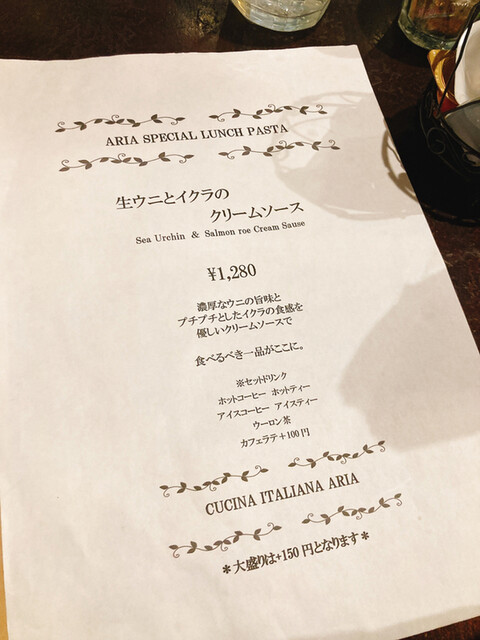 ARIA SPECIAL LUNCH PASTA
生ウニとイクラの
クリームソース
Sea Urchin & Salmon roe Cream Sause
¥1,280
濃厚なウニの旨味と
プチプチとしたイクラの食感を
優しいクリームソースで
食べるべき一品がここに。
※セットドリンク
ホットコーヒー ホットティー
アイスコーヒー アイスティー
ウーロン茶
カフェラテ+100円
CUCINA ITALIANA ARIA
*大盛りは+150円となります*